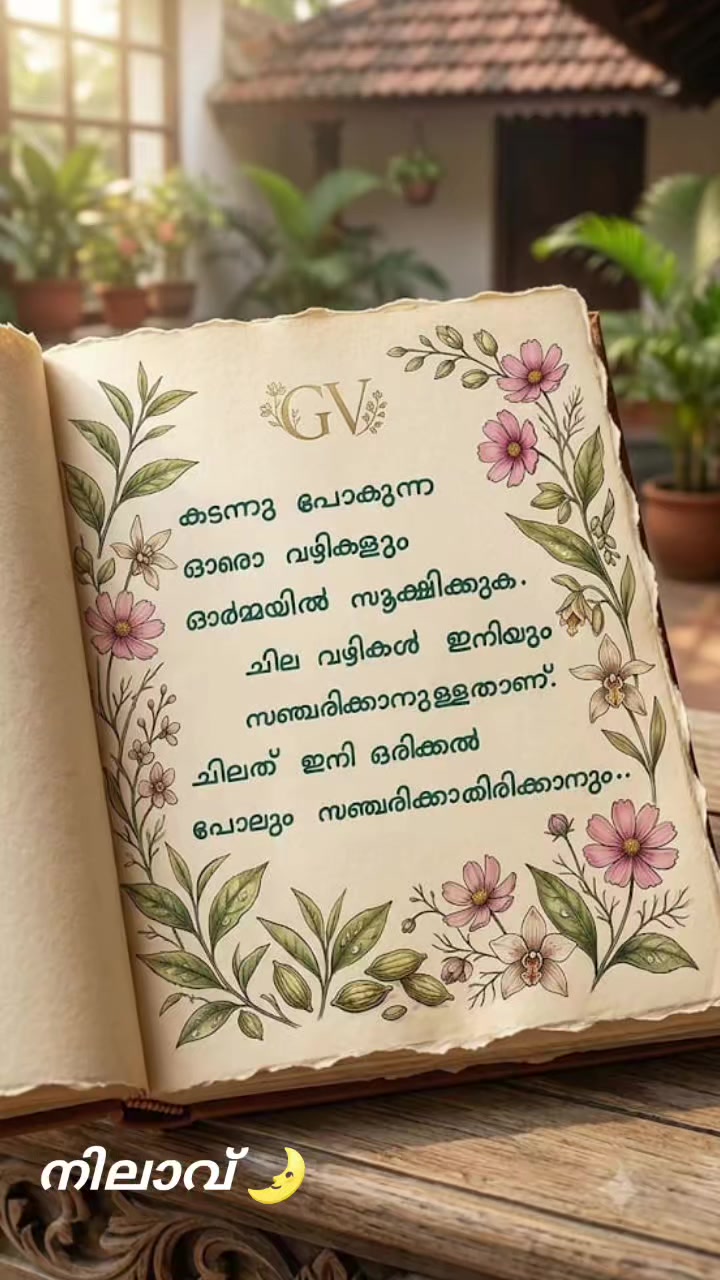 GV
കടന്നു പോകുന്ന
ഓരൊ വഴികളും
ഓർമ്മയിൽ സൂക്ഷിക്കുക.
ചില വഴികൾ ഇനിയും
സഞ്ചരിക്കാനുള്ളതാണ്.
ചിലത് ഇനി ഒരിക്കൽ
പോലും സഞ്ചരിക്കാതിരിക്കാനും..
നിലാവ് 🌛